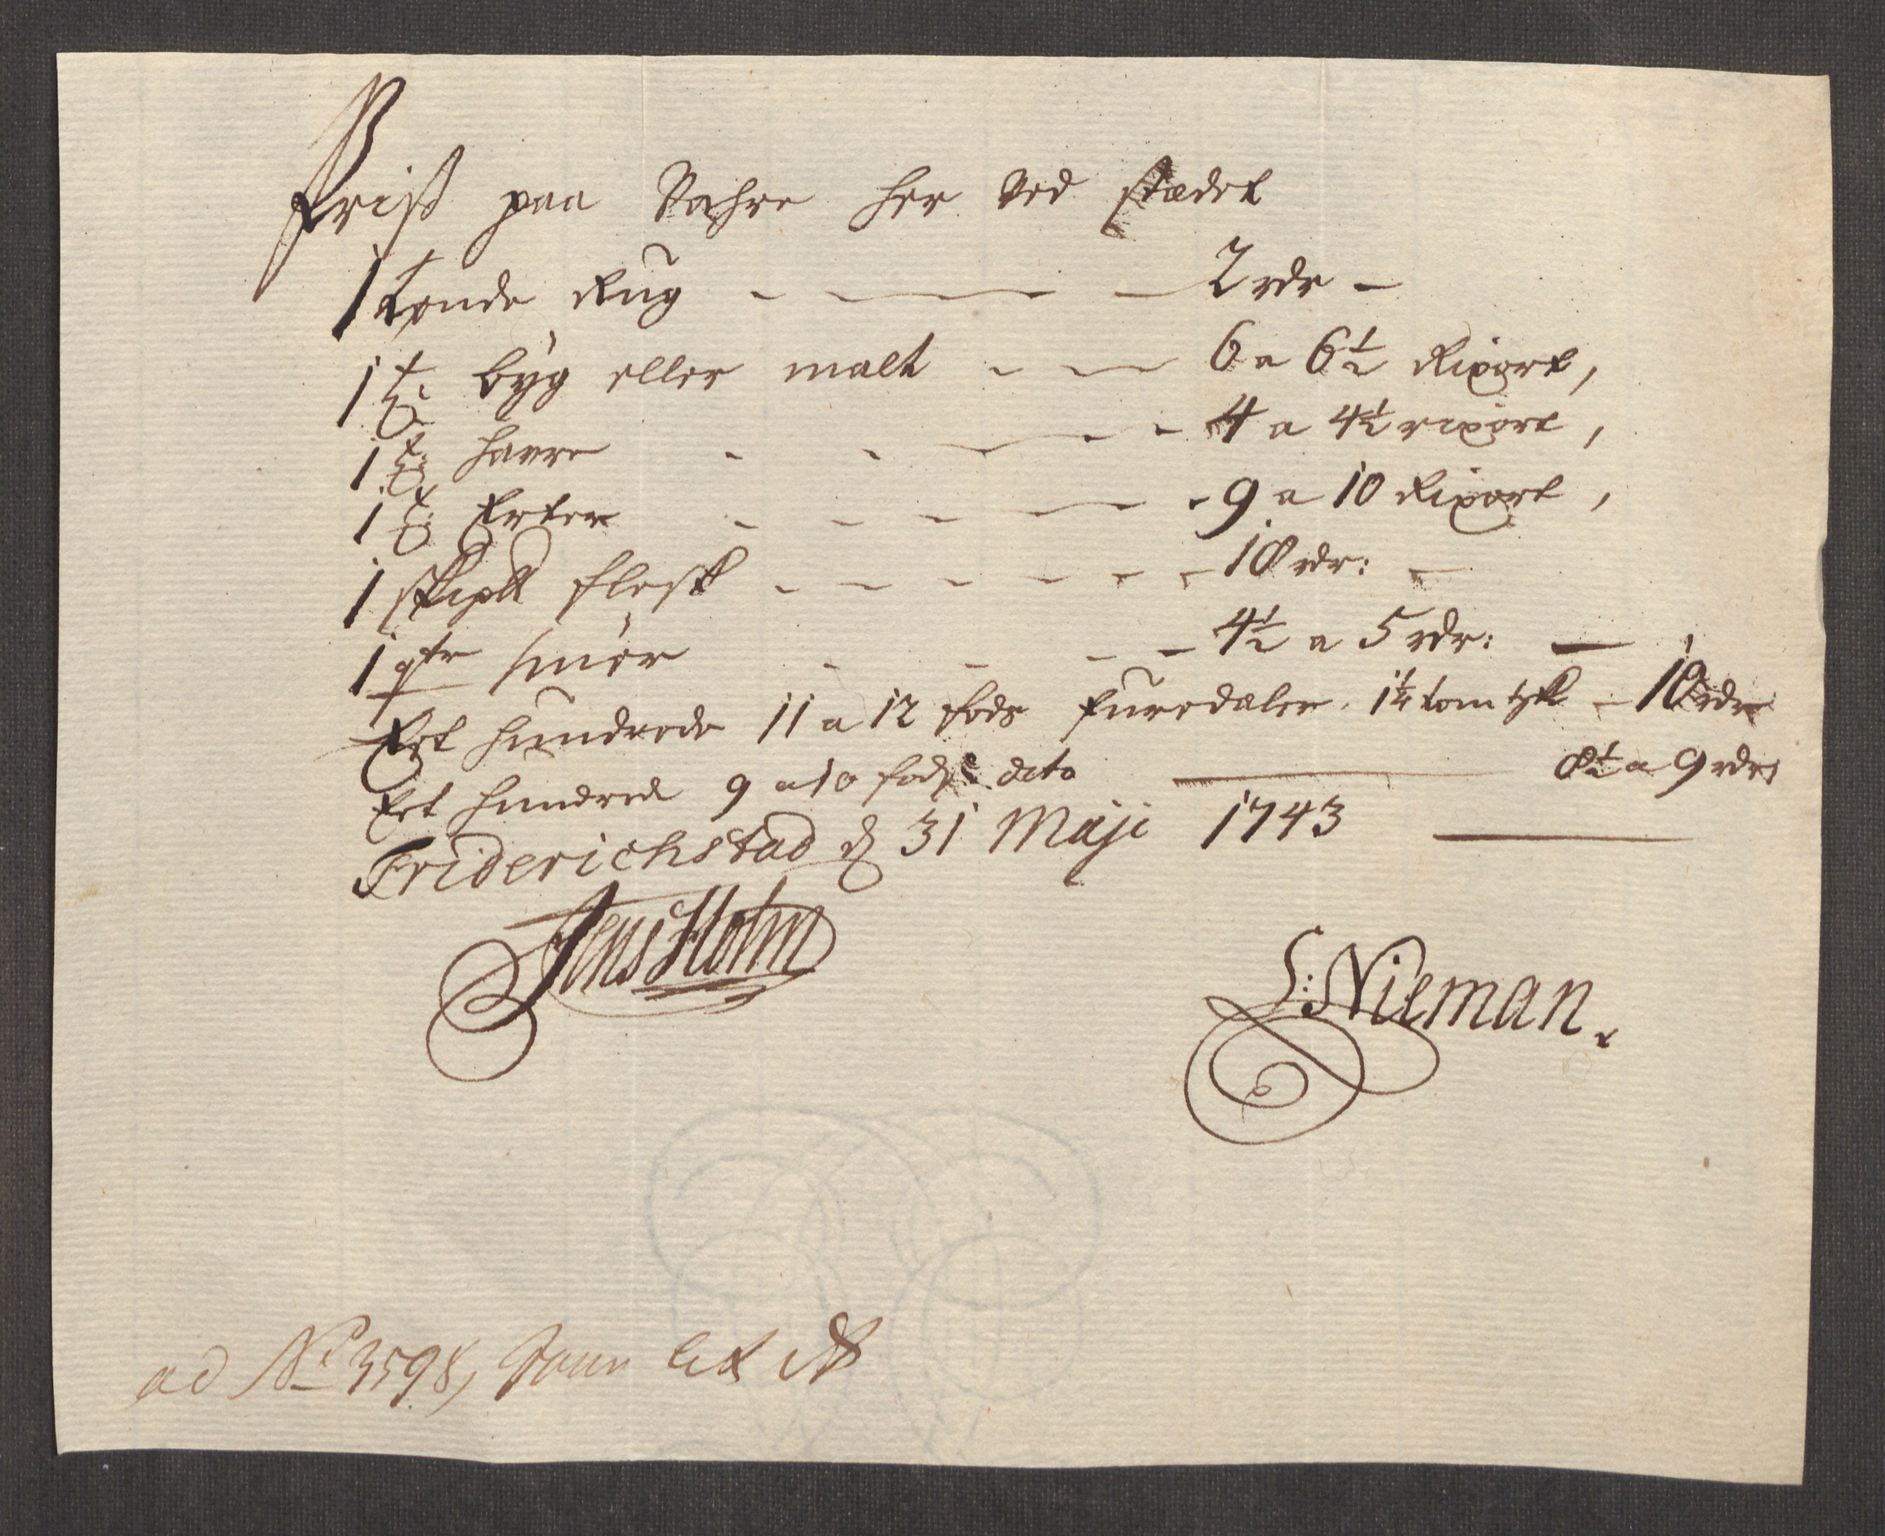 Prisß paa Vahre her ved stædet
1 tønde Rug - - - - 2 rdr -
1 t: byg eller malt - - - 6 a 6½ Rixort,
1 t: havre - - - - - 4 a 4½ rixort,
1 t: Erter - - - - - 9 a 10 Rixort,
1 skipd flesk - - - - - - 10 rdr: -
1 qtr smör - - - - 4½ a 5 rdr: -
Eet hundrede 11 a 12 fods furedaler 1¼ tom tyk - 10 rdr
Eet hundrede 9 a 10 fods dito - 8½ a 9 rdr
Friderichstad d 31 Maji 1743
Jens Holm
S: Nieman.
ad No 3598, Lit